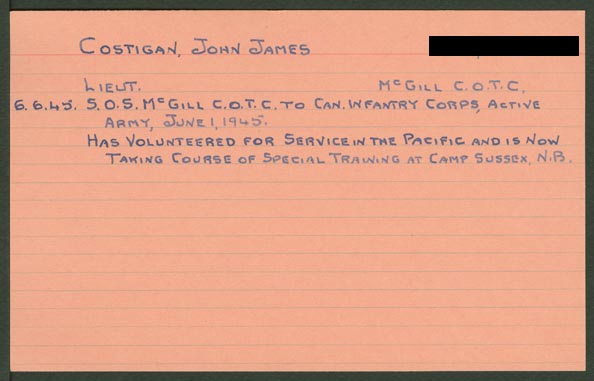 COSTIGAN, JOHN JAMES
LIEUT. McGILL C.O.T.C.
6.6.45. S.O.S. McGILL C.O.T.C. TO CAN. INFANTRY CORPS, ACTIVE
ARMY, JUNE 1, 1945.
HAS VOLUNTEERED FOR SERVICE IN THE PACIFIC AND IS NOW
TAKING COURSE OF SPECIAL TRAINING AT CAMP SUSSEX, N.B.